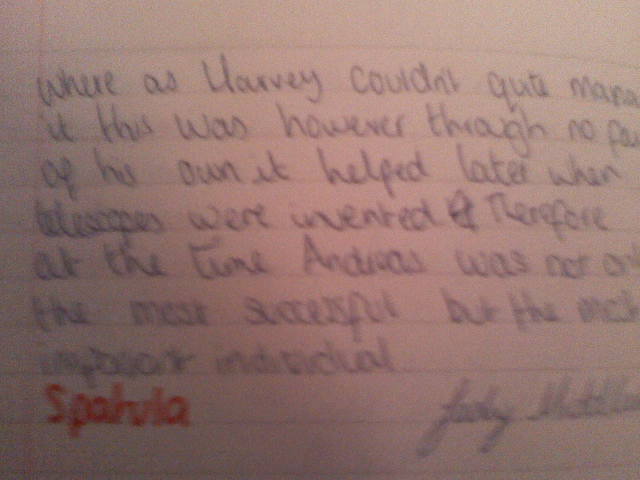 where as Harvey couldn't quite
it this was however through no
of his own it helped later when
telescopes were invented Therefore
at the time Andreas was not
the most successful but the most
important individual.
Spatula